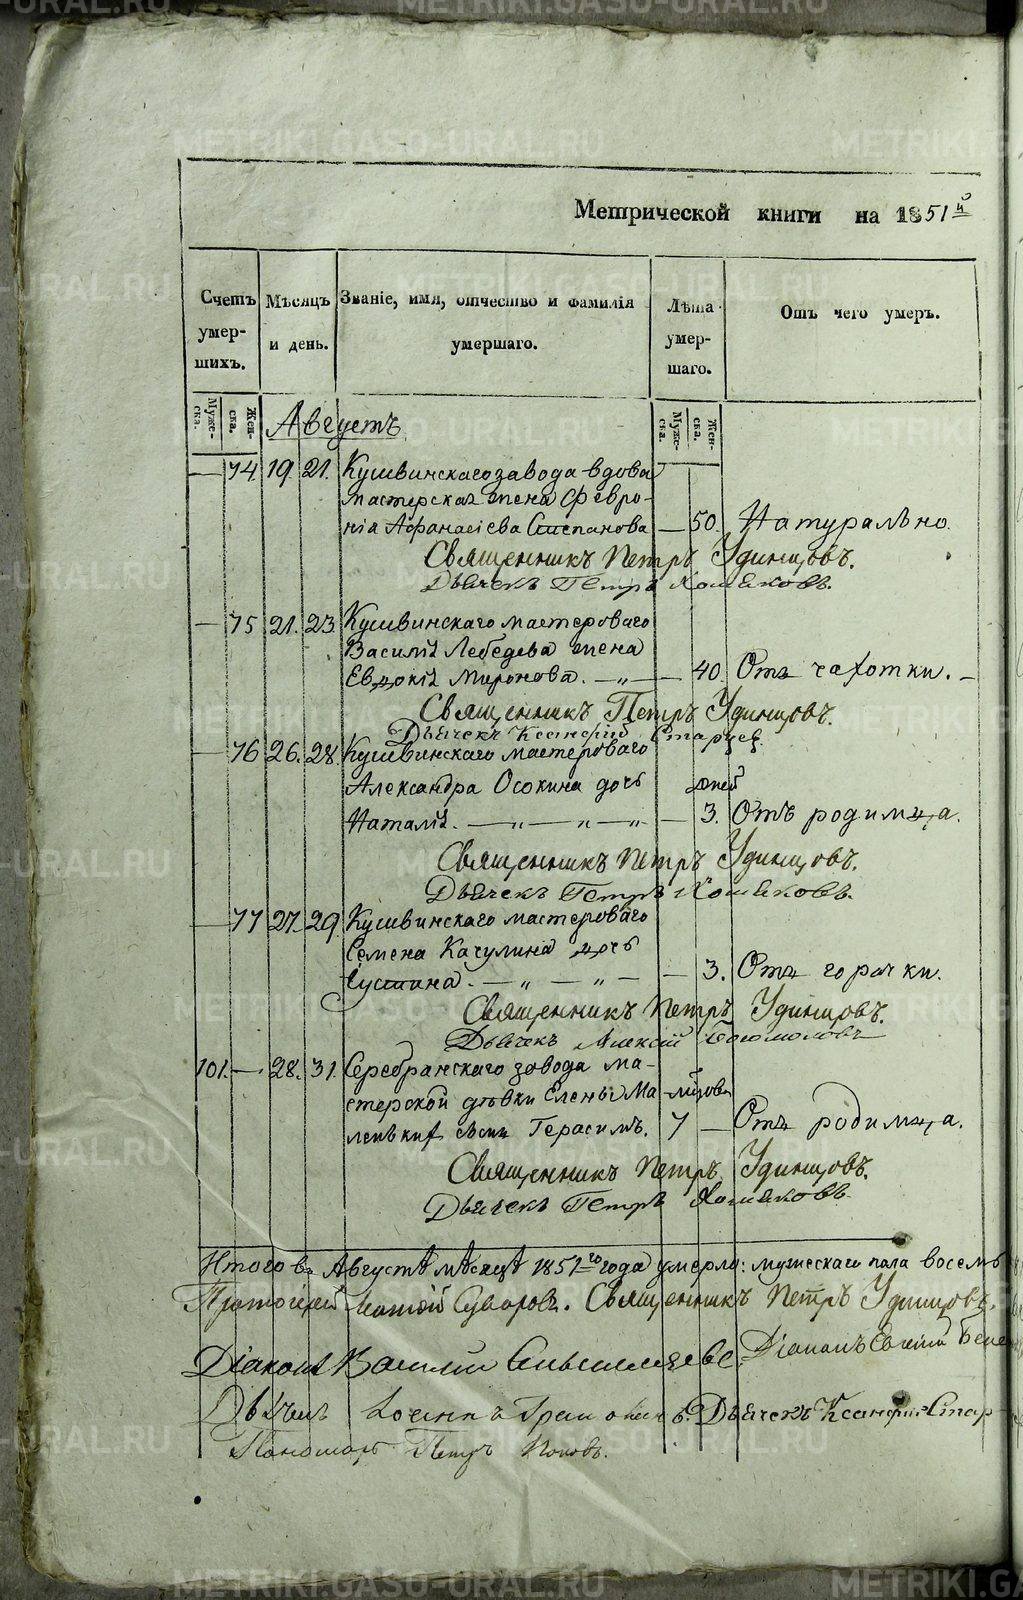 Метрической книги на 1851й
Счетъ умершихъ.
Мѣсяцъ и день.
Званіе, имя, отчество и фамилія умершаго.
Лѣта умершаго.
Отъ чего умеръ.
Мужеска. Женска.
Августъ
Мужеска. Женска.
— 74. 19. 21. Кушвинскаго завода вдова
мастерская жена Февро-
нія Афанасіева Степанова — 50. Натурально.
Священникъ Петръ Удинцовъ.
Дьячекъ Петръ Хомяковъ.
— 75 21. 23. Кушвинскаго мастероваго
Василія Лебедева жена
Евдокія Миронова. — „ — — 40. Отъ чахотки. —
Священникъ Петръ Удинцовъ.
Дьячекъ Ксанфій Старцев.
— 76 26. 28. Кушвинскаго мастероваго
Александра Осокина дочь дней
Наталія. — „ — „ — „ — — 3. Отъ родимца.
Священникъ Петръ Удинцовъ.
Дьячекъ Петръ Хомяковъ.
— 77 27. 29. Кушвинскаго мастероваго
Семена Качулина дочь
Іустина. — „ — „ — — 3. Отъ горячки.
Священникъ Петръ Удинцовъ.
Дьячекъ Алексій Богомоловъ
101. — 28. 31. Серебранскаго завода ма-
стерской дѣвки Елены Ма-
ленкиѣ сынъ Герасимъ. 7 — Отъ родимца.
Священникъ Петръ Удинцовъ.
Дьячекъ Петръ Хомяковъ.
Итого въ Августѣ мѣсяцѣ 1851го года умерло: мужескаго пола восемь
Протоіерей Суворовъ. Священникъ Петръ Удинцовъ.
Діаконъ Василій Діаконъ Евгеній
Дьячекъ Іоаннъ Дьячекъ Ксанфій Стар-
Пономарь Петръ Поповъ.
METRIKI.GASO-URAL.RU